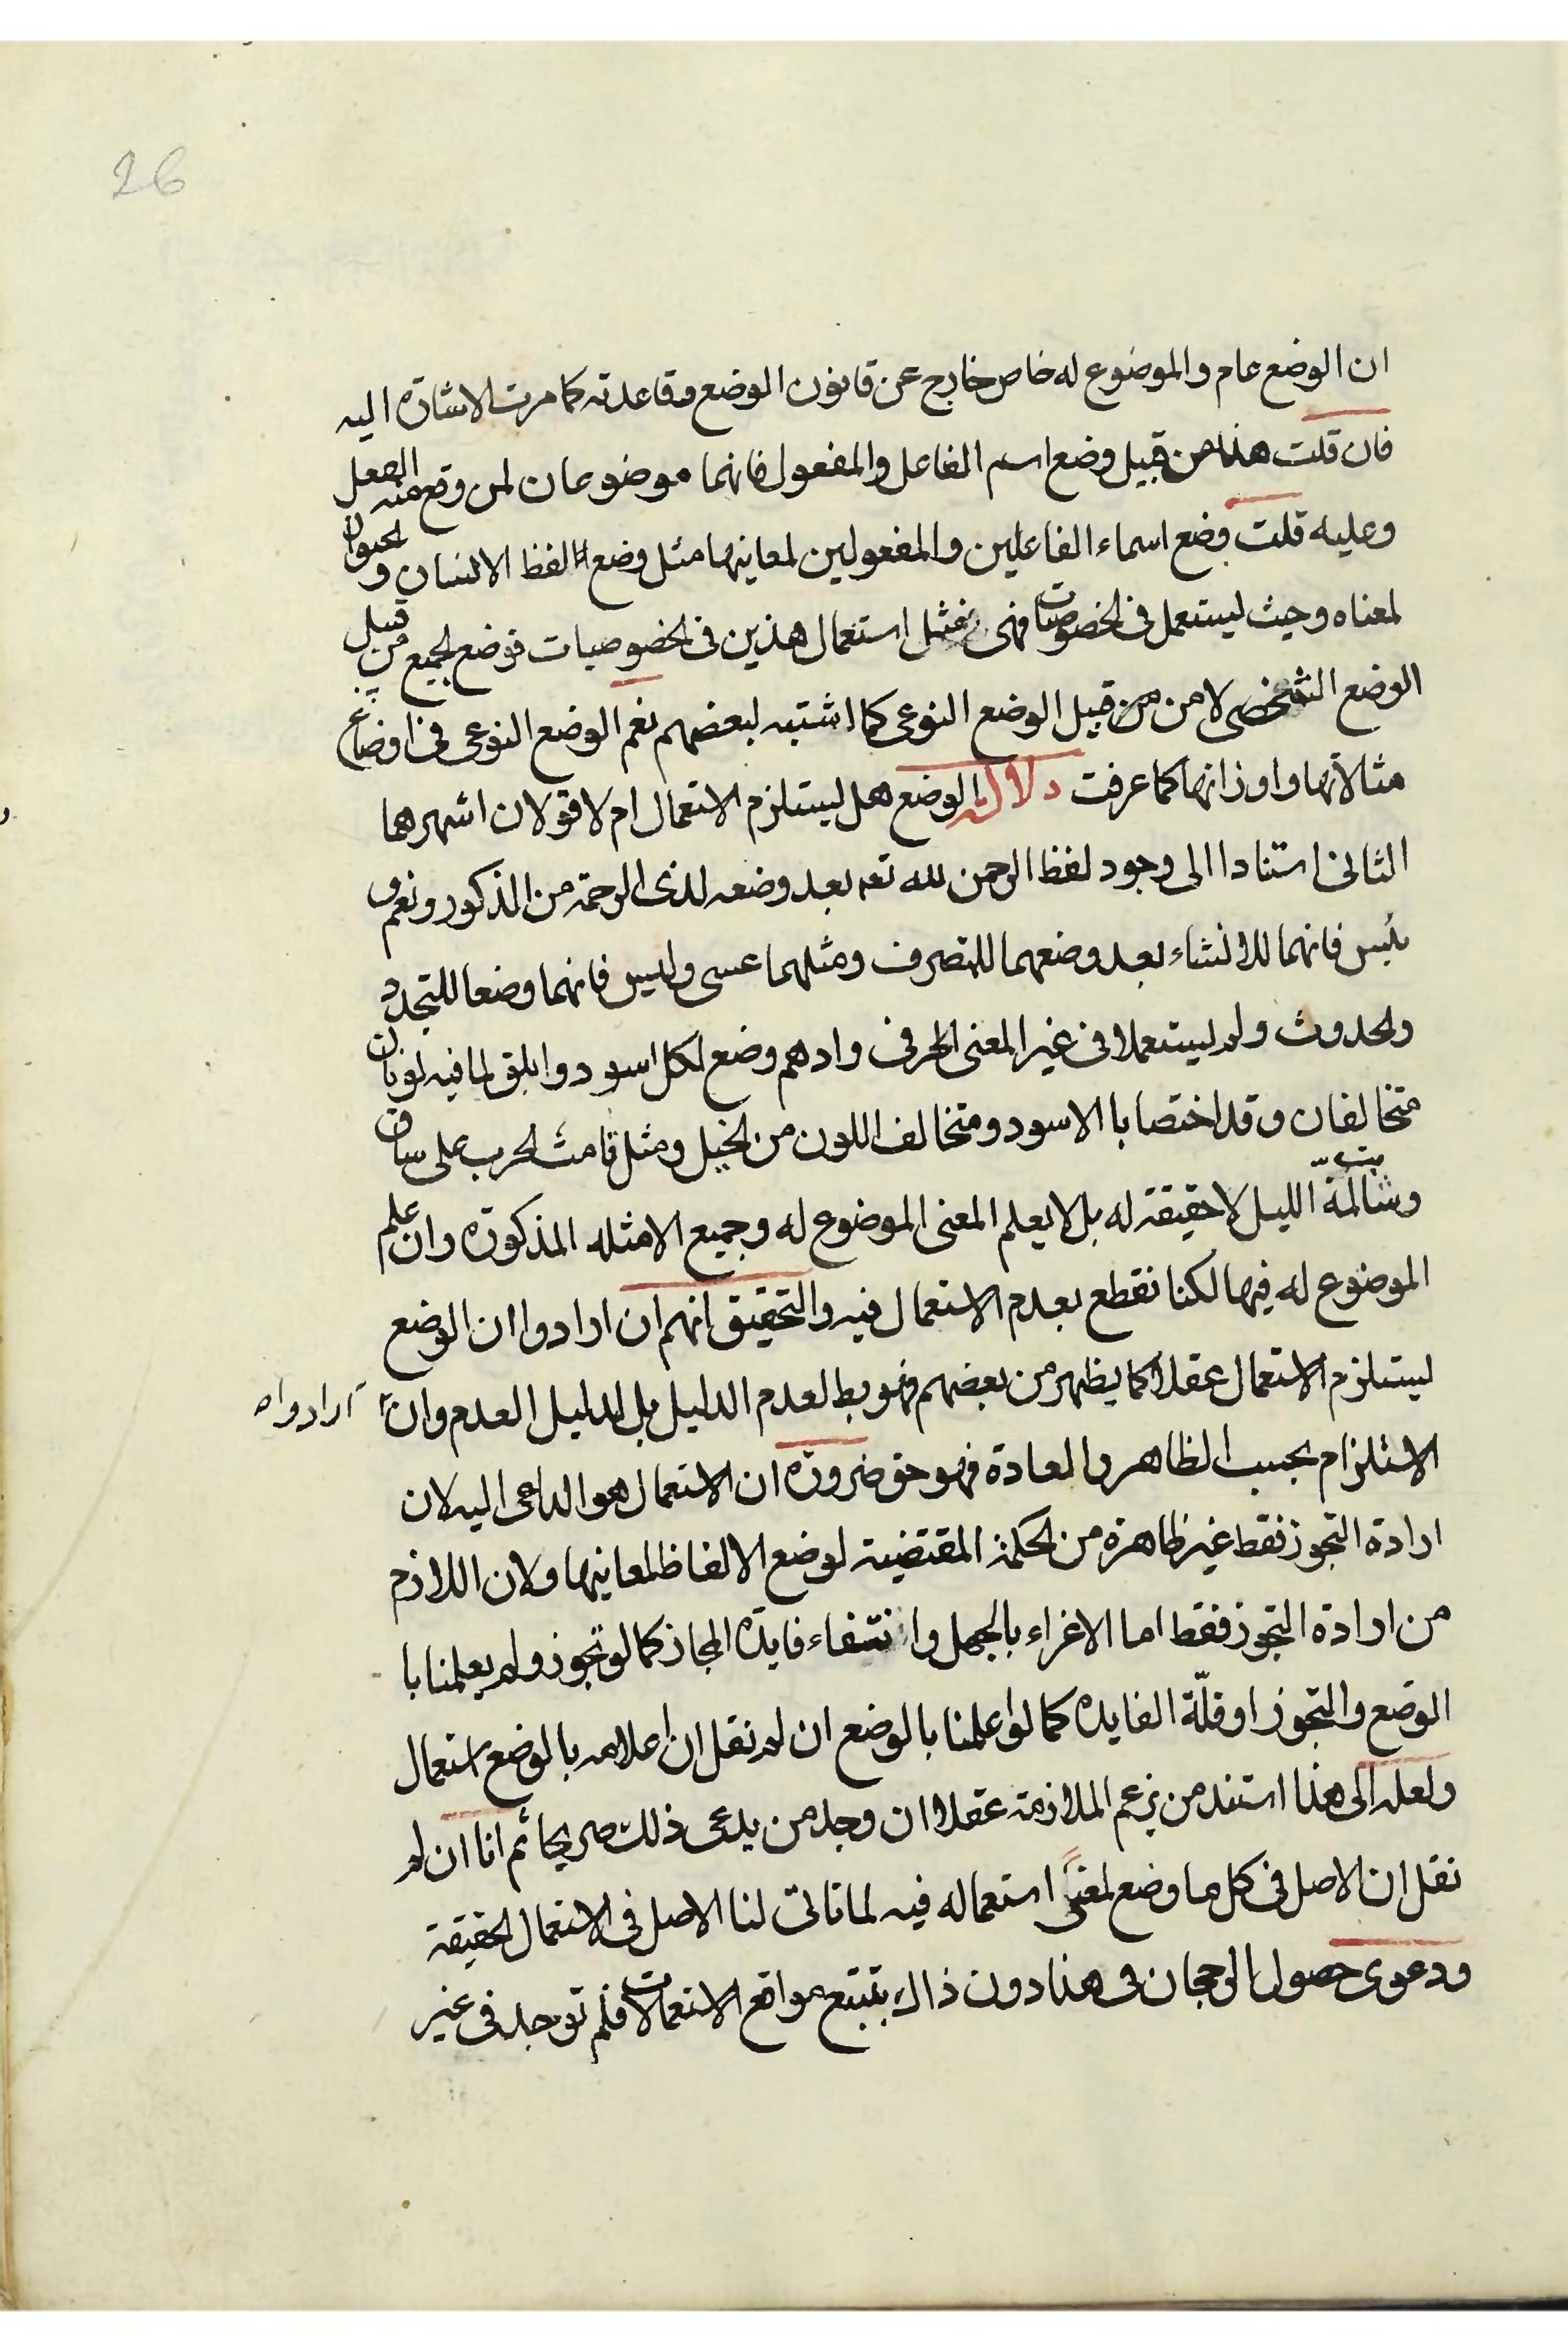 26
ان الوضع عام والموضوع له خاص خارج عن قانون الوضع وقاعدته كما مرت الاشارة اليه
فان قلت هذا من قبيل وضع اسم الفاعل والمفعول فانهما موضوعان لمن وقع منه الفعل
وعليه قلت وضع اسماء الفاعلين والمفعولين لمعانيها مثل وضع لفظ الانسان والحيوان
لمعناه وحيث ليستعمل في الخصوصيات فهى مثل استعمال هذين في الخصوصيات فوضع الجميع من قبيل
الوضع الشخصى لا من من قبيل الوضع النوعى كما اشتبه لبعضهم نعم الوضع النوعى في اوضاع
مثالاتها واوزانها كما عرفت دلالة الوضع هل يستلزم الاستعمال ام لا قولان اشهرهما
الثانى استنادا الى وجود لفظ الرحمن لله تعه بعد وضعه لذى الرحمة من المذكور ونعم و
بئس فانهما للانشاء بعد وضعهما للتصرف ومثلهما عسى وليس فانهما وضعا للتجدد
والحدوث ولم يستعملا في غير المعنى الحرفى وادهم وضع لكل اسود وابلق لما فيه لونان
متخالفان وقد اختصا با الاسود ومتخالف اللون من الخيل ومثل قامت الحرب على ساق
وشابت لمّة الليل لا حقيقة له بل لا يعلم المعنى الموضوع له وجميع الامثله المذكورة وان علم
الموضوع له فيها لكنا نقطع بعدم الاستعمال فيه والتحقيق انهم ان ارادوا ان الوضع
ليستلزم الاستعمال عقلا كما يظهر من بعضهم فهو بط لعدم الدليل بل لدليل العدم وان
ارادوا ه
الاستلزام بحسب الظاهر والعادة فهو حق ضرورة ان الاستعمال هو الداعى اليه لان
ارادة التجوز فقط غير ظاهرة من الحكمة المقتضية لوضع الالفاظ لمعانيها ولان اللازم
من ارادة التجوز فقط اما الاغراء بالجهل وانتفاء فايدة المجاز كما لو تجوز ولم يعلمنا با
الوضع والتجوز او قلّة الفايده كما لو اعلمنا بالوضع ان لم نقل ان اعلامه بالوضع استعمال
ولعله الى هذا استند من يزعم الملازمة عقلا ان وجد من يدعى ذلك صريحا ثم انا ان لم
نقل ان الاصل في كل ما وضع لمعنى استعماله فيه لما تاتى لنا الاصل في الاستعمال الحقيقة
ودعوى حصول الرجحان في هذا دون ذاك بتتبع مواقع الاستعمالات فلم توجد في غير